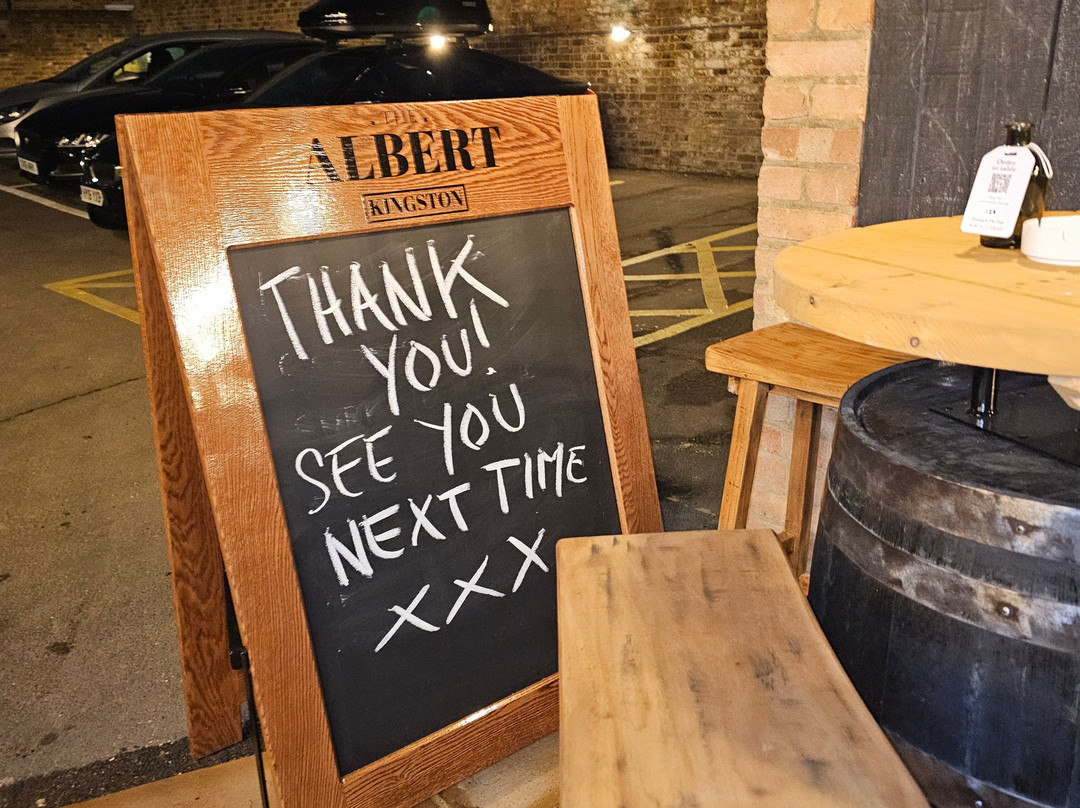 THE
ALBERT
KINGSTON
THANK
YOU!
SEE YOU
NEXT TIME
XXX
Order
to table